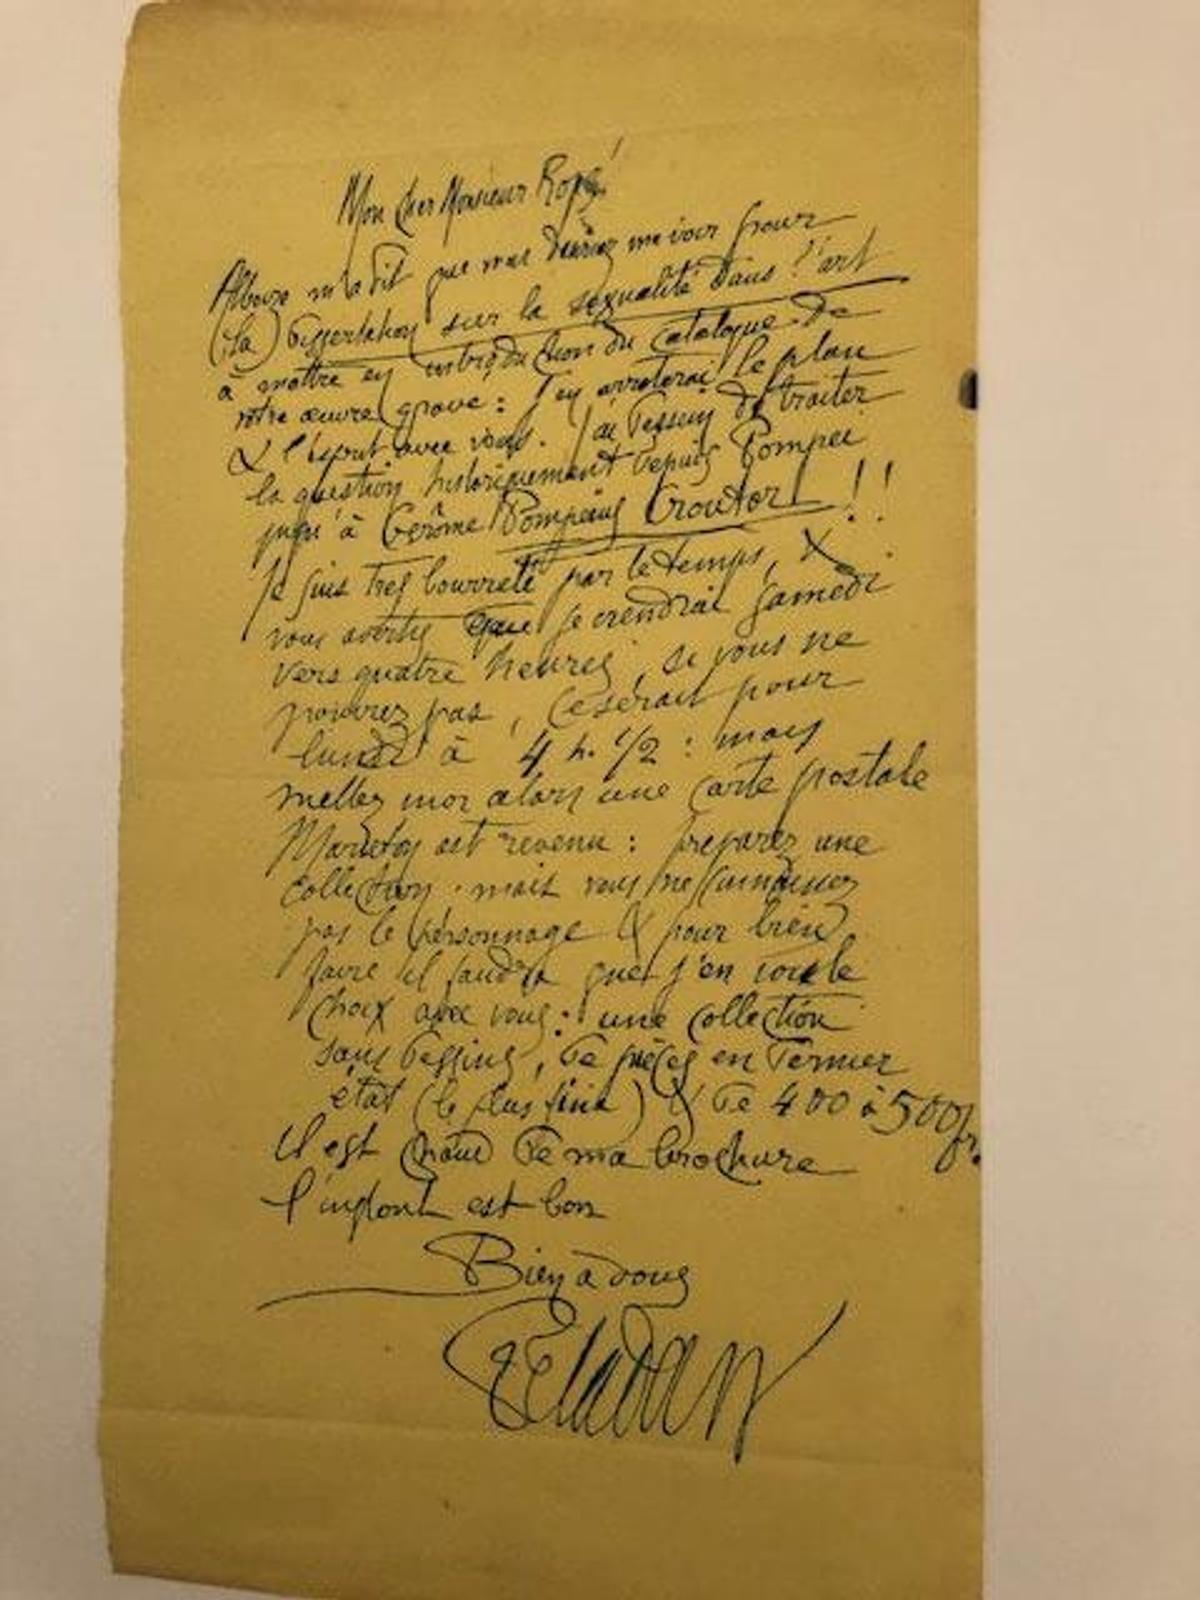 Mon cher Monsieur Rops!
m'a dit que vous désiriez me voir pour
(la) dissertation sur la sexualité dans l'art
à mettre en introduction du catalogue de
votre œuvre gravé: j'en arrêterai le plan
& l'esprit avec vous. J'ai dessein de traiter
la question historiquement depuis Pompei
jusqu'à Gérôme Pompeius Croutor!!
Je suis très bourrelé par le temps, &
vous avertis que je viendrai samedi
vers quatre heures, si vous ne
pouvez pas, ce serait pour
lundi à 4 h. 1/2: mais
mettez moi alors une carte postale
Mariéton est revenu: préparez une
collection. mais vous ne connaissez
pas le personnage & pour bien
faire il faudra que j'en le
choix avec vous: une collection
sans dessins, de pièces en dernier
état (le plus fini) & de 400 à 500 fr.
Il est chaud de ma brochure
l'instant est bon
Bien à vous
Péladan